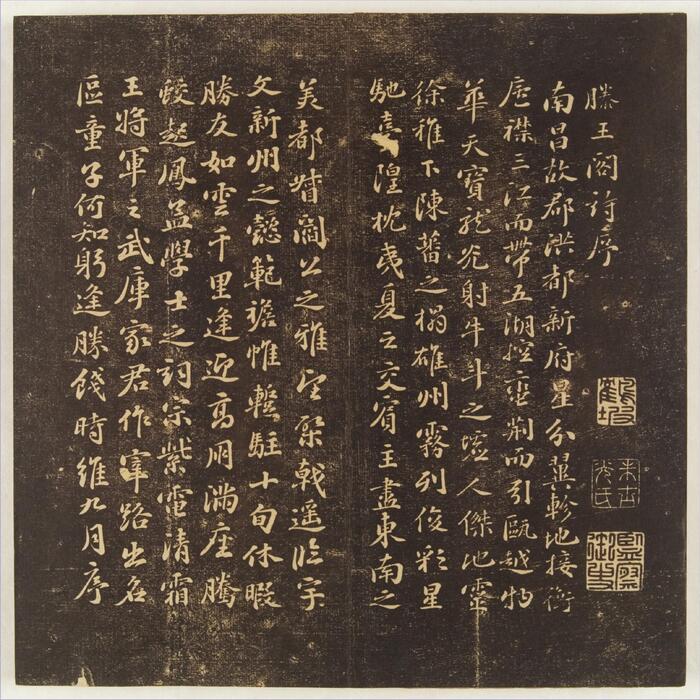 滕王阁詩序
南昌故郡洪都新府星分翼軫地接衡
廬襟三江而帶五湖控蠻荆而引甌越物
華天寶龍光射牛斗之墟人傑地靈
徐稚下陳蕃之榻雄州霧列俊彩星
馳臺隍枕夷夏之交賓主盡東南之
美都督閻公之雅望棨戟遥臨宇
文新州之懿範襜帷暫駐十旬休暇
勝友如雲千里逢迎高朋滿座騰
蛟起鳳孟學士之詞宗紫電清霜
王將軍之武庫家君作宰路出名
區童子何知躬逢勝餞時維九月序
監察御史